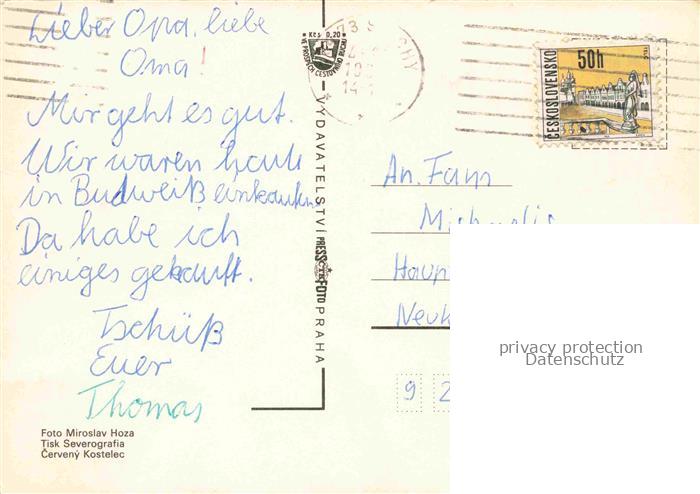 Lieber Opa, liebe
Oma!
Mir geht es gut.
Wir waren heute
in Budweiß einkaufen
Da habe ich
einiges gekauft.
Tschüß
Euer
Thomas
Foto Miroslav Hoza
Tisk Severografia
Červený Kostelec
Kčs 0,20
VE PROSPĚCH CESTOVNÍHO RUCHU
VYDAVATELSTVÍ PRESSFOTO PRAHA
73
50h
ČESKOSLOVENSKO
An. Fam
Haup
Neu
9 2
privacy protection
Datenschutz